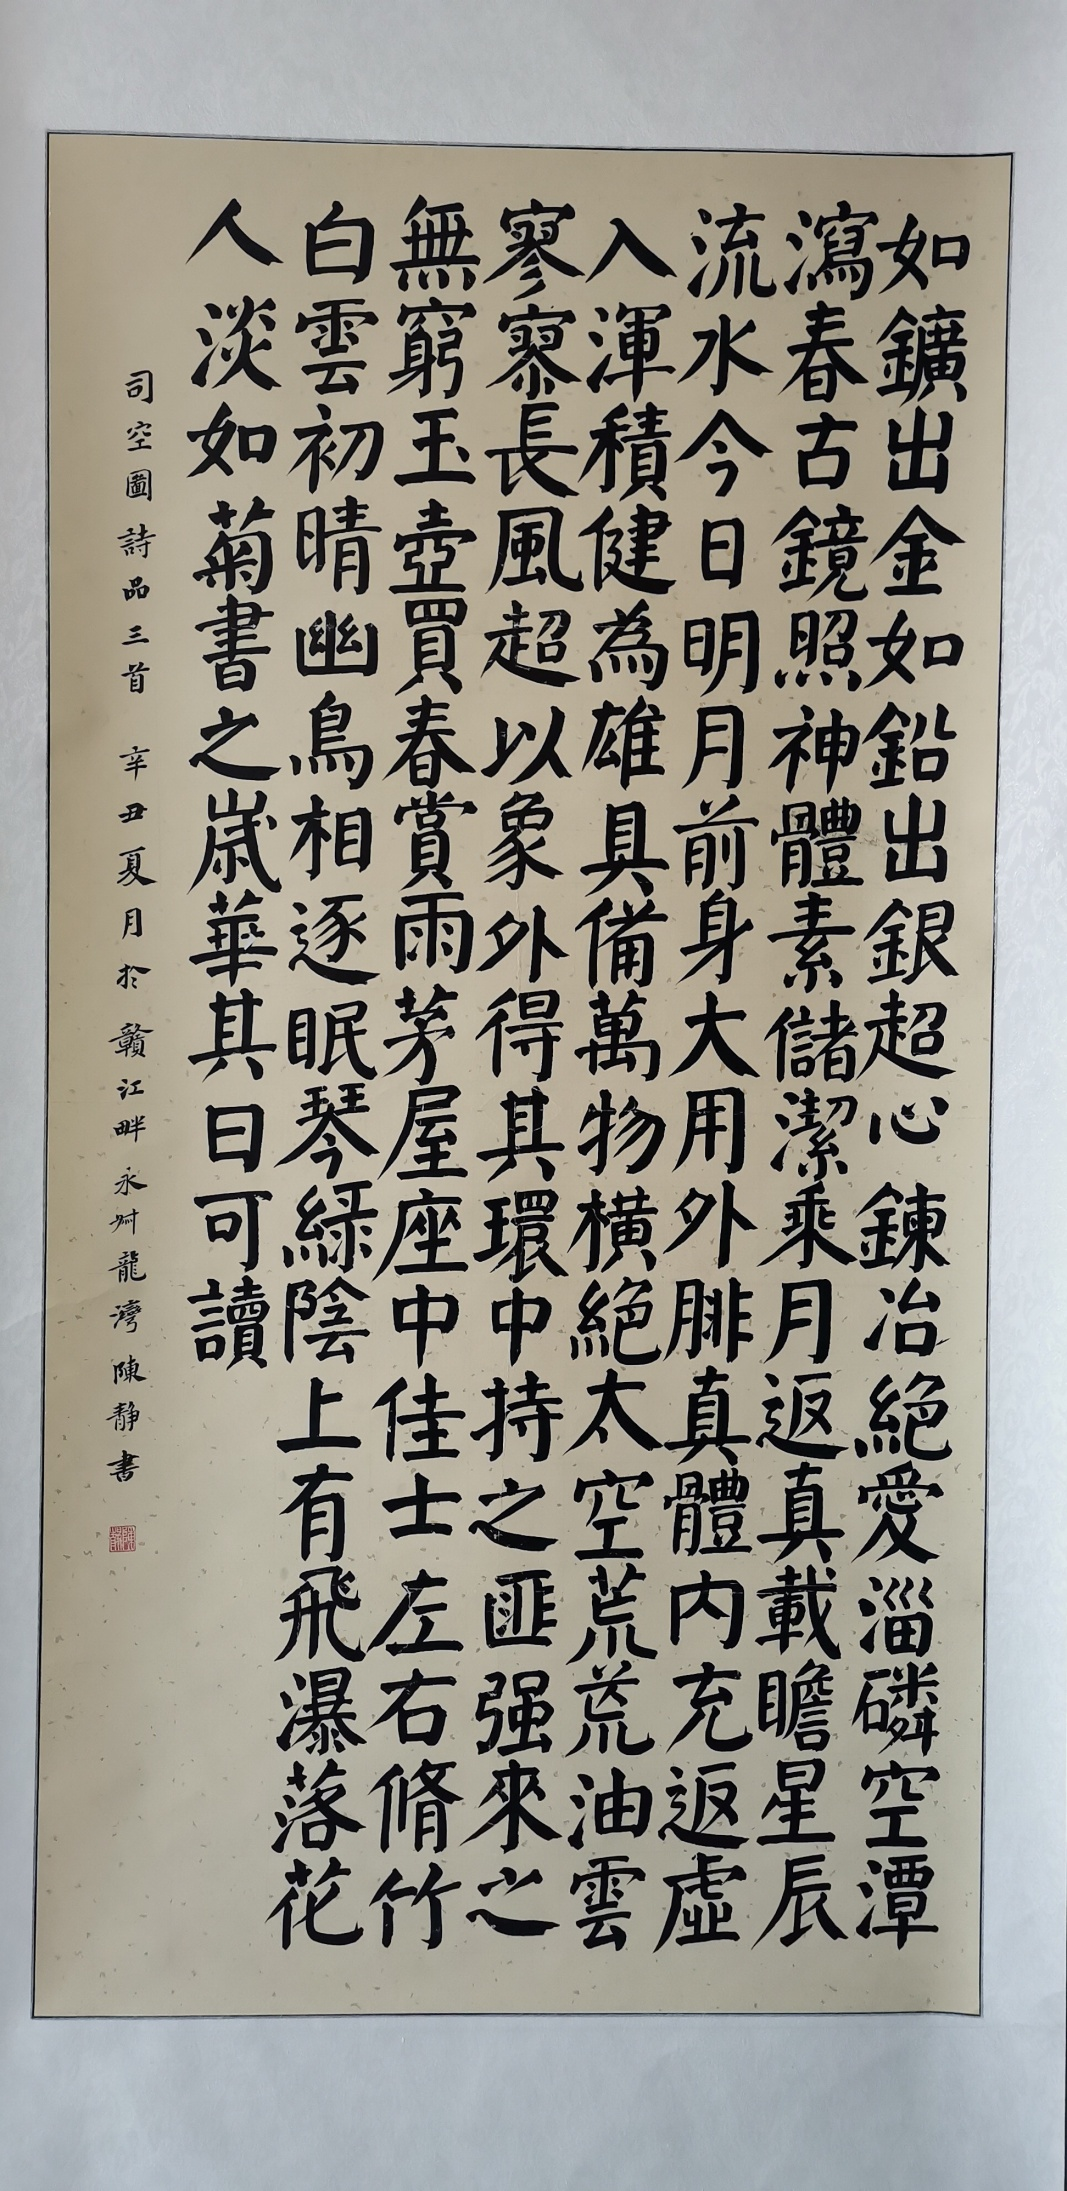 如鑛出金如鉛出銀超心鍊冶絕愛淄磷空潭
瀉春古鏡照神體素儲潔乘月返真載瞻星辰
流水今日明月前身大用外腓真體内充返虛
入渾積健為雄具備萬物橫絕太空荒荒油雲
寥寥長風超以象外得其環中持之匪强來之
無窮玉壺買春賞雨茅屋座中佳士左右脩竹
白雲初晴幽鳥相逐眠琴綠陰上有飛瀑落花
人淡如菊書之歲華其曰可讀
司空圖詩品三首 辛丑夏月於贛江畔永龍灣陳靜書